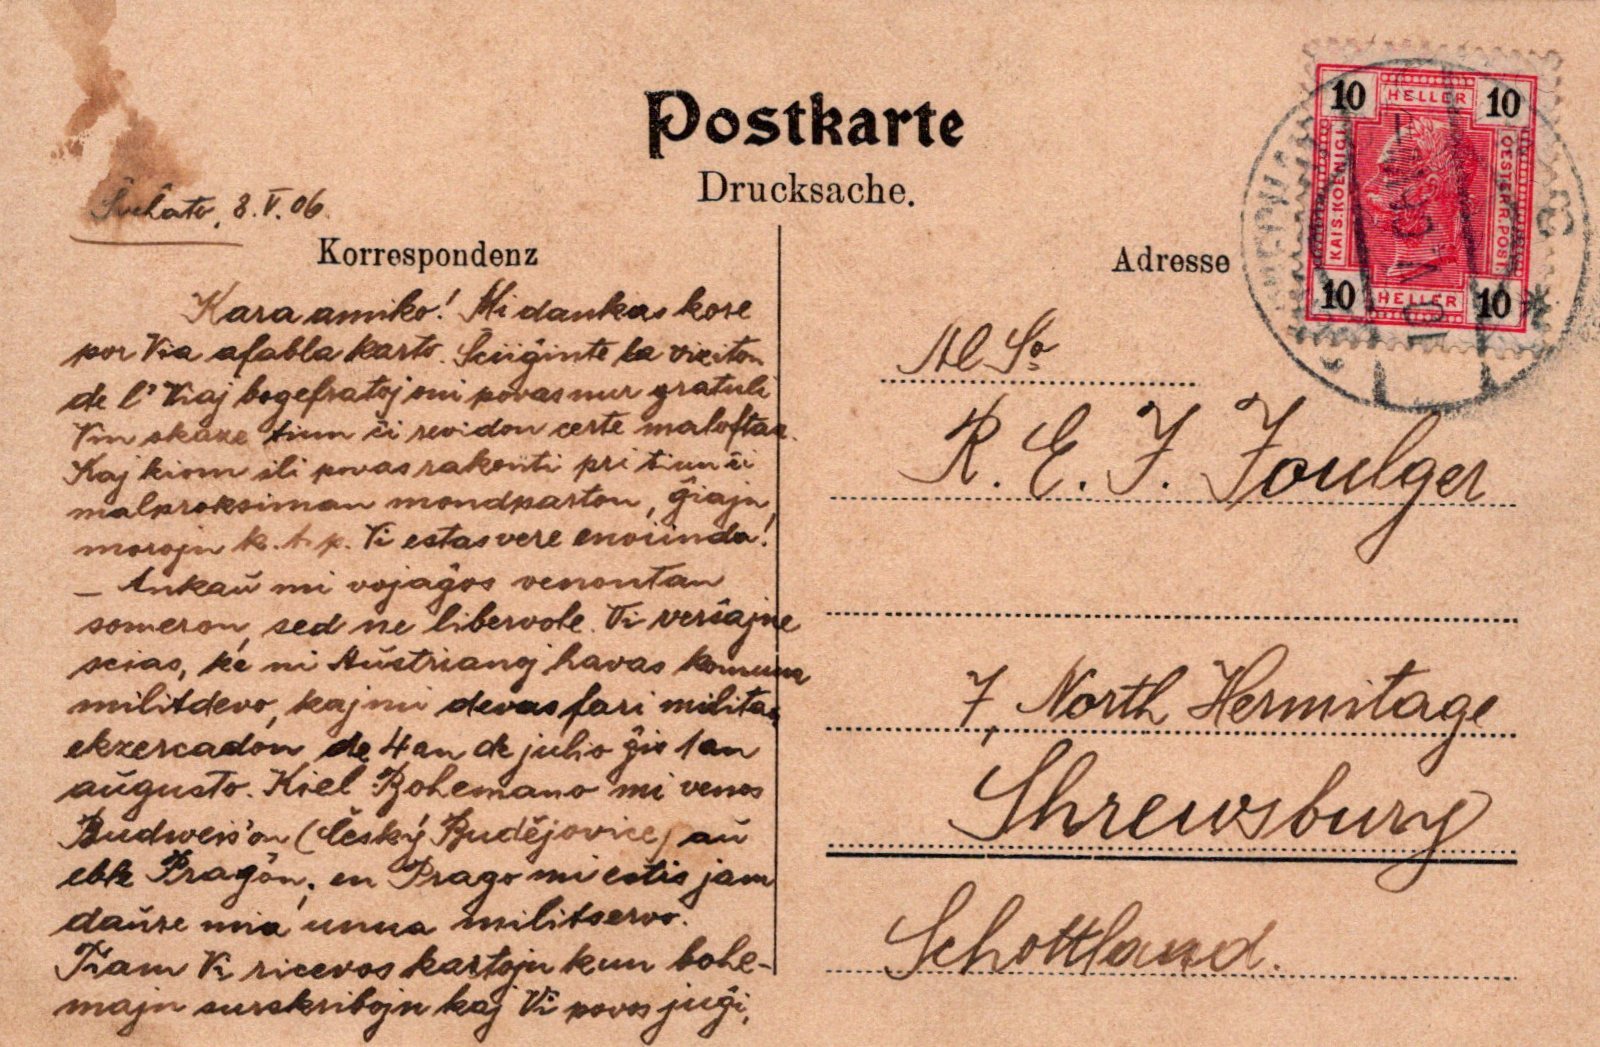 Postkarte
Drucksache.
8.V.06.
Korrespondenz
Kara amiko! Mi dankas kore
por Via afabla karto. Sciiĝinte la viziton
de l' Viaj bogefratoj oni povas nur gratuli
Vin okaze tiun ĉi revidon certe maloftan.
Kaj kiom ili povas rakonti pri tiun ĉi
malproksiman mondparton, ĝiajn
morojn k.t.p. Vi estas vere enviinda!
— Ankaŭ mi vojaĝos venontan
someron, sed ne libervole. Vi verŝajne
scias, ke ni Aŭstrianoj havas komuna
militdevo, kaj mi devas fari militan
ekzercadon de 4an de julio ĝis 1an
aŭgusto. Kiel Bohemano mi venos
Budweis'on (Český Budějovice) aŭ
eble Pragon; en Prago mi estis jam
daŭre mia unua militservo.
Tiam Vi ricevos kartojn kun bohe-
majn surskribojn kaj Vi povos juĝi,
Adresse
Al So
R. E. F. Foulger
7, North Hermitage
Shrewsbury
Schottland.
10 HELLER 10
KAIS. KOENIGL.
OESTERR. POST
10 HELLER 10